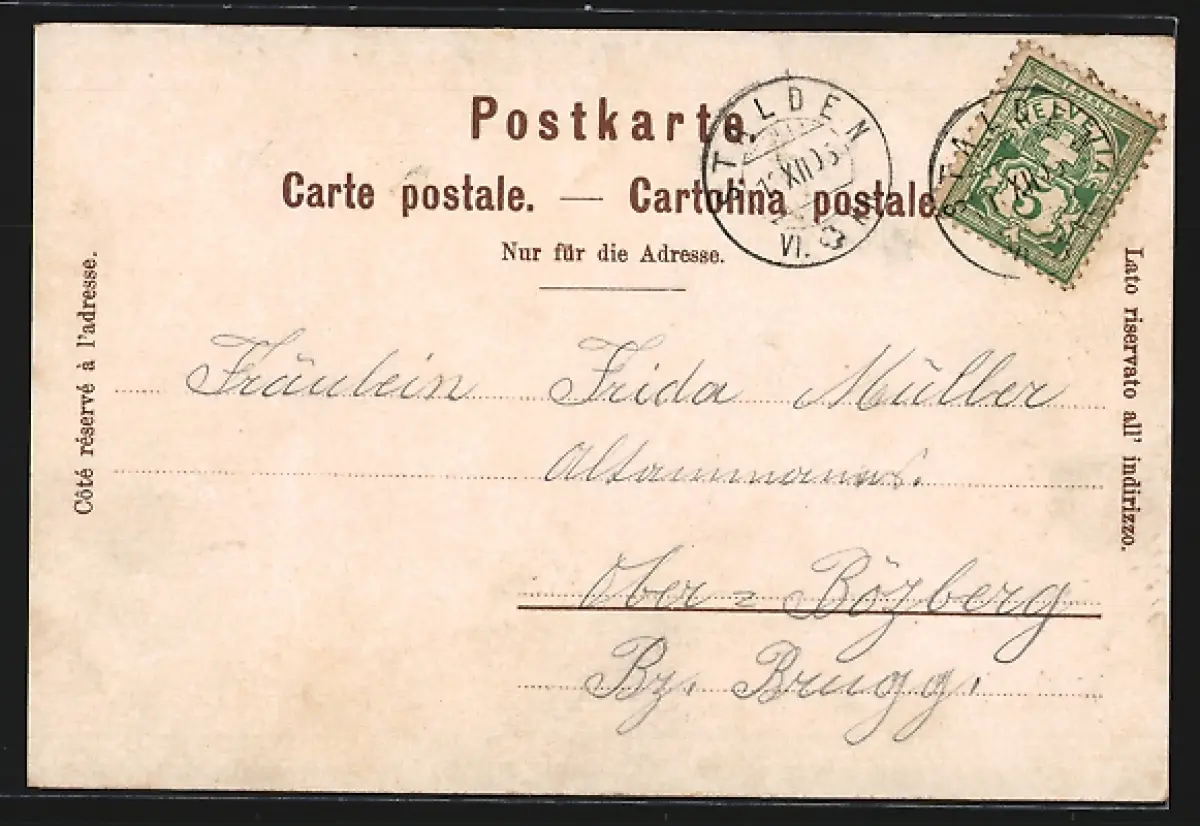 Postkarte.
Carte postale. — Cartolina postale.
Nur für die Adresse.
Côté réservé à l'adresse.
Lato riservato all' indirizzo.
STALDEN
XII 05
VI.
STALDEN
XII 05
HELVETIA
5
Fräulein Frida Müller
Altammanns.
Ober = Bözberg
Bz. Brugg.